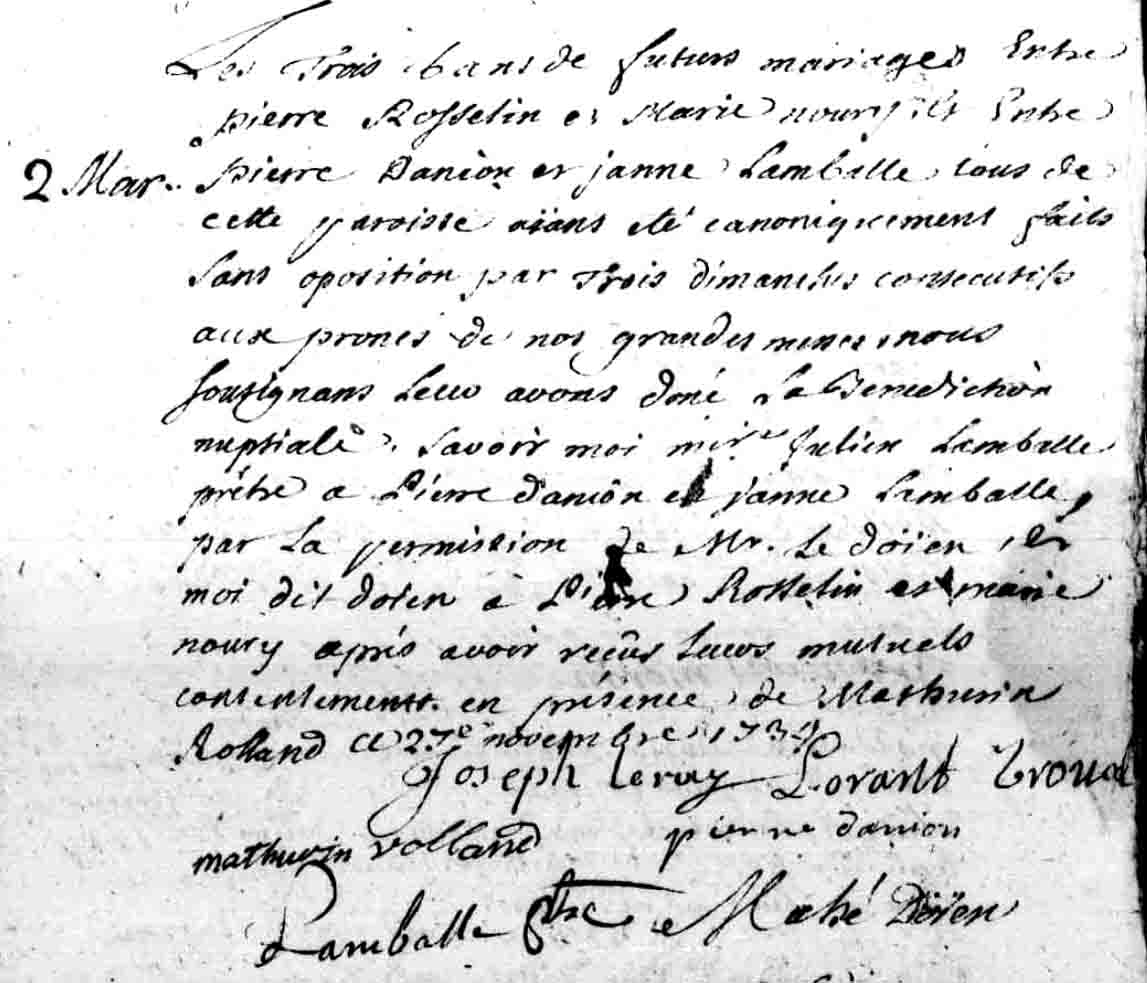 Les Trois bans de futurs mariages Entre
pierre Rosselin et Marie noury et Entre
2 Mar. pierre Danion et janne Lamballe tous de
cette paroisse aians eté canoniquement faits
sans oposition par Trois dimanches consecutifs
aux prones de nos grandes messes nous
sousignans leur avons doné La Benediction
nuptiale. savoir moi mire Julien Lamballe
prêtre a Pierre danion et janne Lamballe,
par La permission de Mr. Le doïen, et
moi dit doïen à Pierre Rosselin et marie
noury après avoir reçûs leurs mutuels
consentements en présence de Mathurin
Rolland ce 27e novembre
Joseph Leray Lorant Troual
mathurin rolland pierre danion
Lamballe ptre Mahé Doïen